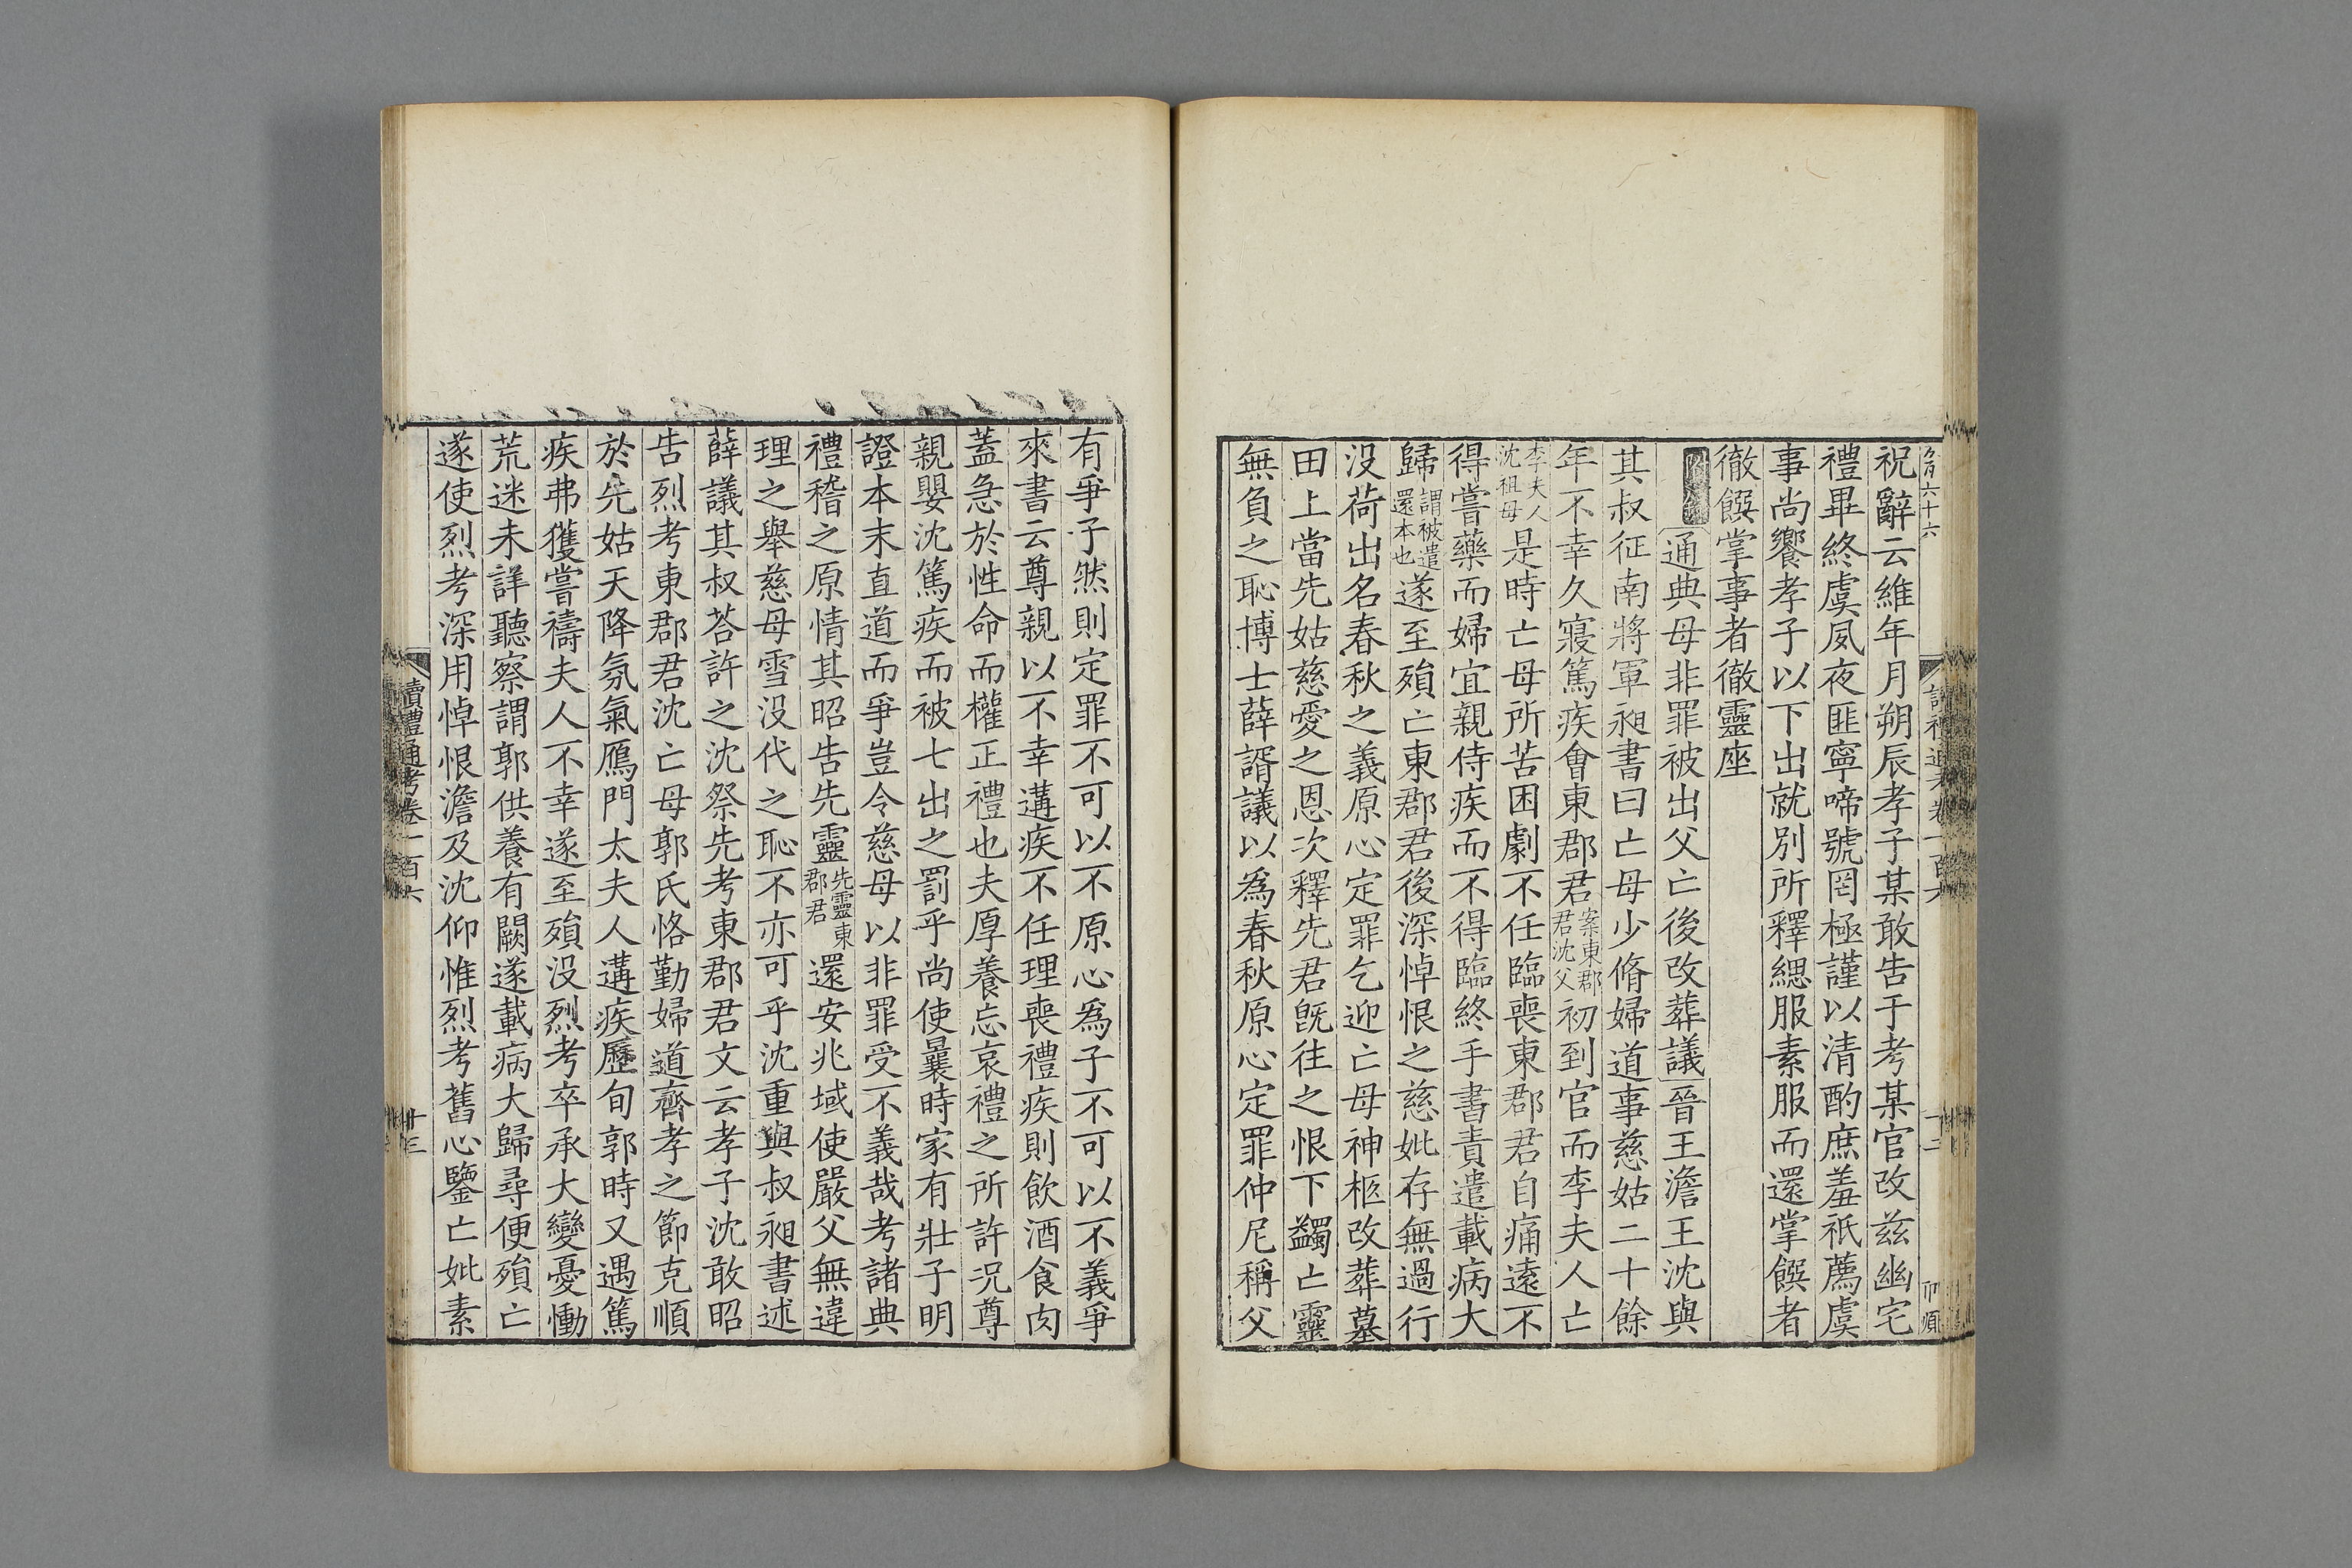 祝辭云維年月朔辰孝子某敢告于考某官改玆幽宅
禮畢終虞夙夜匪寧啼號罔極謹以清酌庶羞祗薦虞
事尚饗孝子以下出就別所釋緦服素服而還掌饌者
徹饌掌事者徹靈座
通典母非罪被出父亡後改葬議晉王澹王沈與
其叔征南將軍昶書曰亡母少脩婦道事慈姑二十餘
年不幸久寢篤疾會東郡君案東郡君沈父初到官而李夫人亡
李夫人沈祖母是時亡母所苦困劇不任臨喪東郡君自痛遠不
得嘗藥而婦宜親侍疾而不得臨終手書責遣載病大
歸謂被遣還本也遂至殞亡東郡君後深悼恨之慈妣存無過行
没荷出名春秋之義原心定罪乞迎亡母神柩改葬墓
田上當先姑慈愛之恩次釋先君旣往之恨下蠲亡靈
無負之恥博士薛諝議以爲春秋原心定罪仲尼稱父
有爭子然則定罪不可以不原心爲子不可以不義爭
來書云尊親以不幸遘疾不任理喪禮疾則飲酒食肉
蓋急於性命而權正禮也夫厚養忘哀禮之所許況尊
親嬰沈篤疾而被七出之罰乎尚使曩時家有壯子明
證本末直道而爭豈令慈母以非罪受不義哉考諸典
禮稽之原情其昭告先靈先靈東郡君還安兆域使嚴父無違
理之舉慈母雪没代之恥不亦可乎沈重與叔昶書述
薛議其叔荅許之沈祭先考東郡君文云孝子沈敢昭
告烈考東郡君沈亡母郭氏恪勤婦道齊孝之節克順
於先姑天降氛氣鴈門太夫人遘疾歷旬郭時又遇篤
疾弗獲嘗禱夫人不幸遂至殞没烈考卒承大變憂慟
荒迷未詳聽察謂郭供養有闕遂載病大歸尋便殞亡
遂使烈考深用悼恨澹及沈仰惟烈考舊心鑒亡妣素
讀禮通考卷一百六
十三